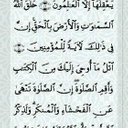 يَعْقِلُهَا إِلَّا الْعَالِمُونَ ۝ خَلَقَ اللَّهُ
السَّمَاوَاتِ وَالْأَرْضَ بِالْحَقِّ إِنَّ
فِي ذَٰلِكَ لَآيَةً لِلْمُؤْمِنِينَ ۝
اتْلُ مَا أُوحِيَ إِلَيْكَ مِنَ الْكِتَابِ
وَأَقِمِ الصَّلَاةَ إِنَّ الصَّلَاةَ تَنْهَىٰ
عَنِ الْفَحْشَاءِ وَالْمُنْكَرِ وَلَذِكْرُ